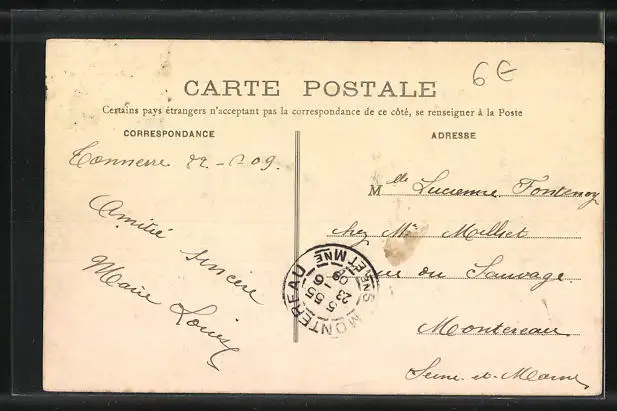 6€
CARTE POSTALE
Certains pays étrangers n'acceptant pas la correspondance de ce côté, se renseigner à la Poste
CORRESPONDANCE
ADRESSE
Tonnerre 22 - 2 09.
Amitié sincère
Marie Louise
Mlle Lucienne Fontenoy
chez Mr Millet
rue du Sauvage.
Montereau
Seine-et-Marne
MONTEREAU
ET MNE
23 - 6
09